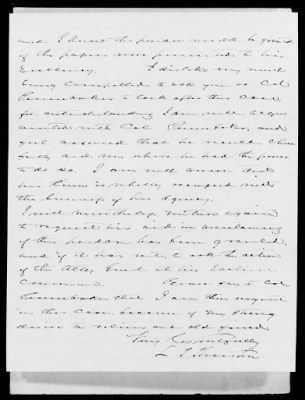 and I know the pardon would be granted
if the papers were presented to his
Excellency. I dislike very much
being compelled to ask you or Col
to look after this case
for notwithstanding I am well acqu
ainted with Col and
feel assured that he would cheer
fully aid me where he had the power
to do so. I am well aware that
his time is wholly occupied with
the business of his Agency.
I will nevertheless venture again
to request his aid in ascertaining
if this pardon has been granted
and if it has not, to ask the action
of the Atty Genl at his earliest
convenience. Please say to Col
that I am thus urgent
in the case because of my strong
desire to relieve an old friend
Very Respectfully